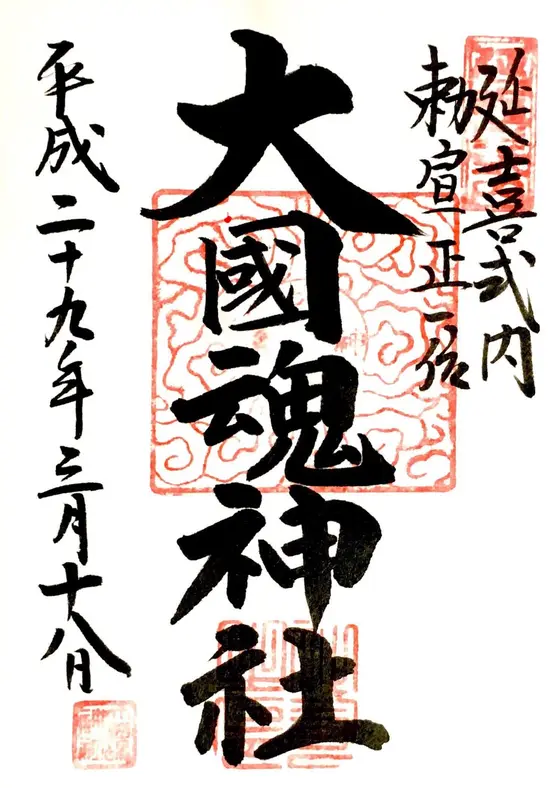 延喜式内
勅宣正一位
大國魂神社
平成二十九年三月十八日